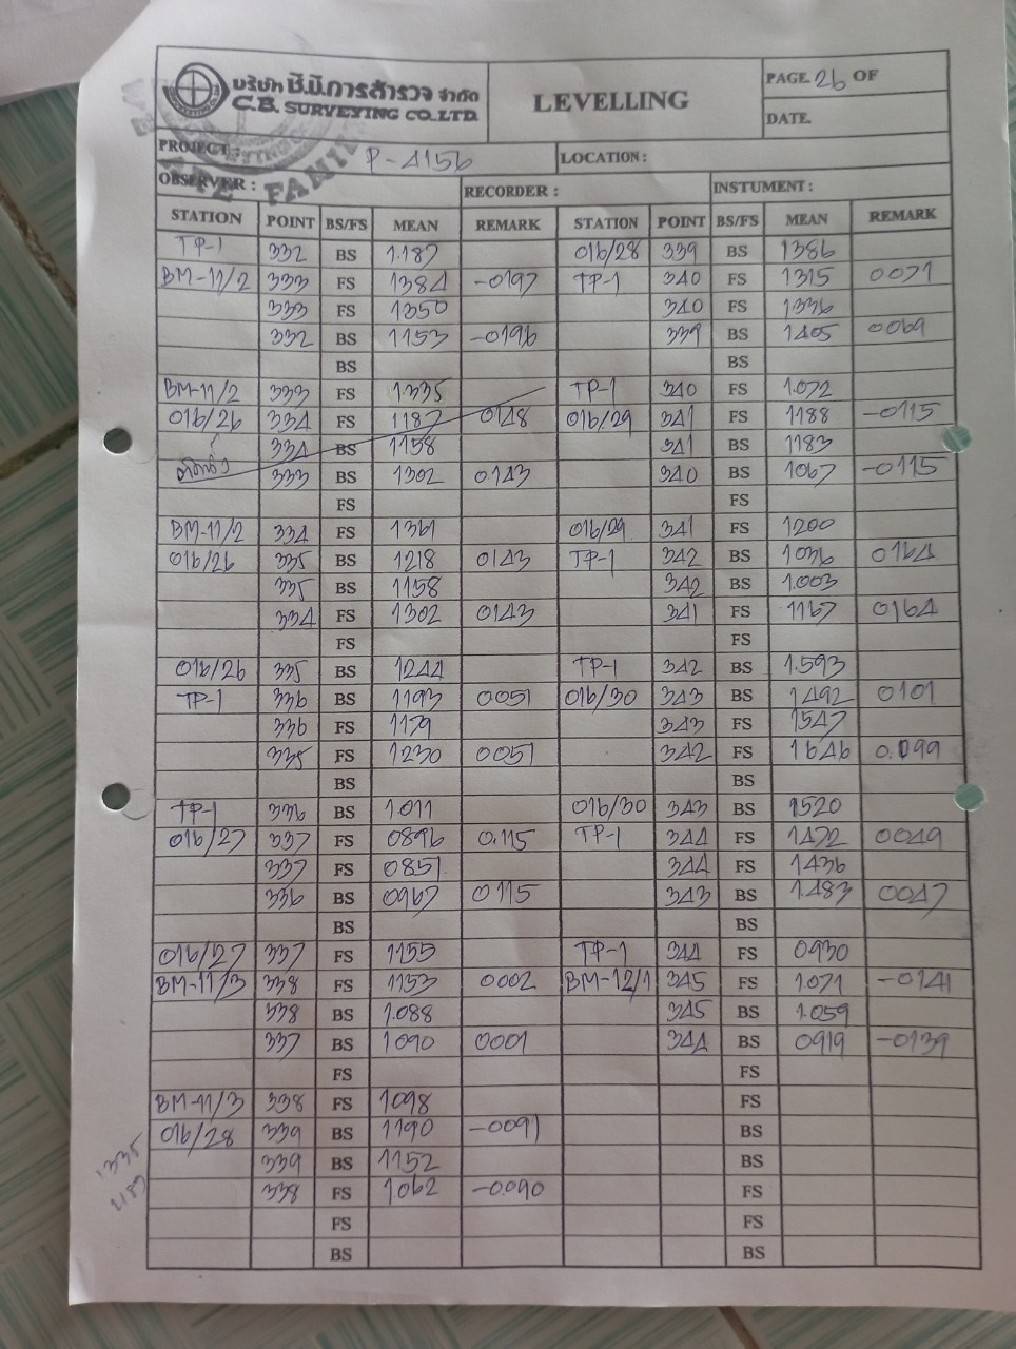 บริษัท ซี.บี.การสำรวจ จำกัด
C.B. SURVEYING CO.LTD.
LEVELLING
PAGE. 26 OF
DATE.
PROJECT : P-4156 LOCATION :
OBSERVER : RECORDER : INSTUMENT :
STATION POINT BS/FS MEAN REMARK STATION POINT BS/FS MEAN REMARK
TP-1 332 BS 1.187 016/28 339 BS 1386
BM-11/2 333 FS 1384 -0197 TP-1 340 FS 1315 0071
333 FS 1350 340 FS 1336
332 BS 1153 -0196 339 BS 1405 0069
BS BS
BM-11/2 333 FS 1.335 TP-1 340 FS 1.072
016/26 334 FS 1187 0148 016/29 341 FS 1188 -0115
334 BS 1158 341 BS 1183
333 BS 1302 0.143 340 BS 1067 -0115
FS FS
BM-11/2 334 FS 1361 016/29 341 FS 1200
016/26 335 BS 1218 0143 TP-1 342 BS 1036 0164
335 BS 1158 342 BS 1.003
334 FS 1302 0143 341 FS 1167 0164
FS FS
016/26 335 BS 1244 TP-1 342 BS 1.593
TP-1 336 BS 1193 0051 016/30 343 BS 1492 0101
336 FS 1179 343 FS 1547
335 FS 1230 0051 342 FS 1646 0.099
BS BS
TP-1 336 BS 1.011 016/30 343 BS 1520
016/27 337 FS 0896 0.115 TP-1 344 FS 1472 0049
337 FS 0851 344 FS 1436
336 BS 0967 0115 343 BS 1.483 0047
BS BS
016/27 337 FS 1155 TP-1 344 FS 0930
BM-11/3 338 FS 1153 0002 BM-12/1 345 FS 1.071 -0141
338 BS 1.088 345 BS 1.059
337 BS 1090 0001 344 BS 0919 -0139
FS FS
BM-11/3 338 FS 1098 FS
016/28 339 BS 1190 -0091 BS
339 BS 1152 BS
338 FS 1.062 -0.090 FS
FS FS
BS BS
1335
1187